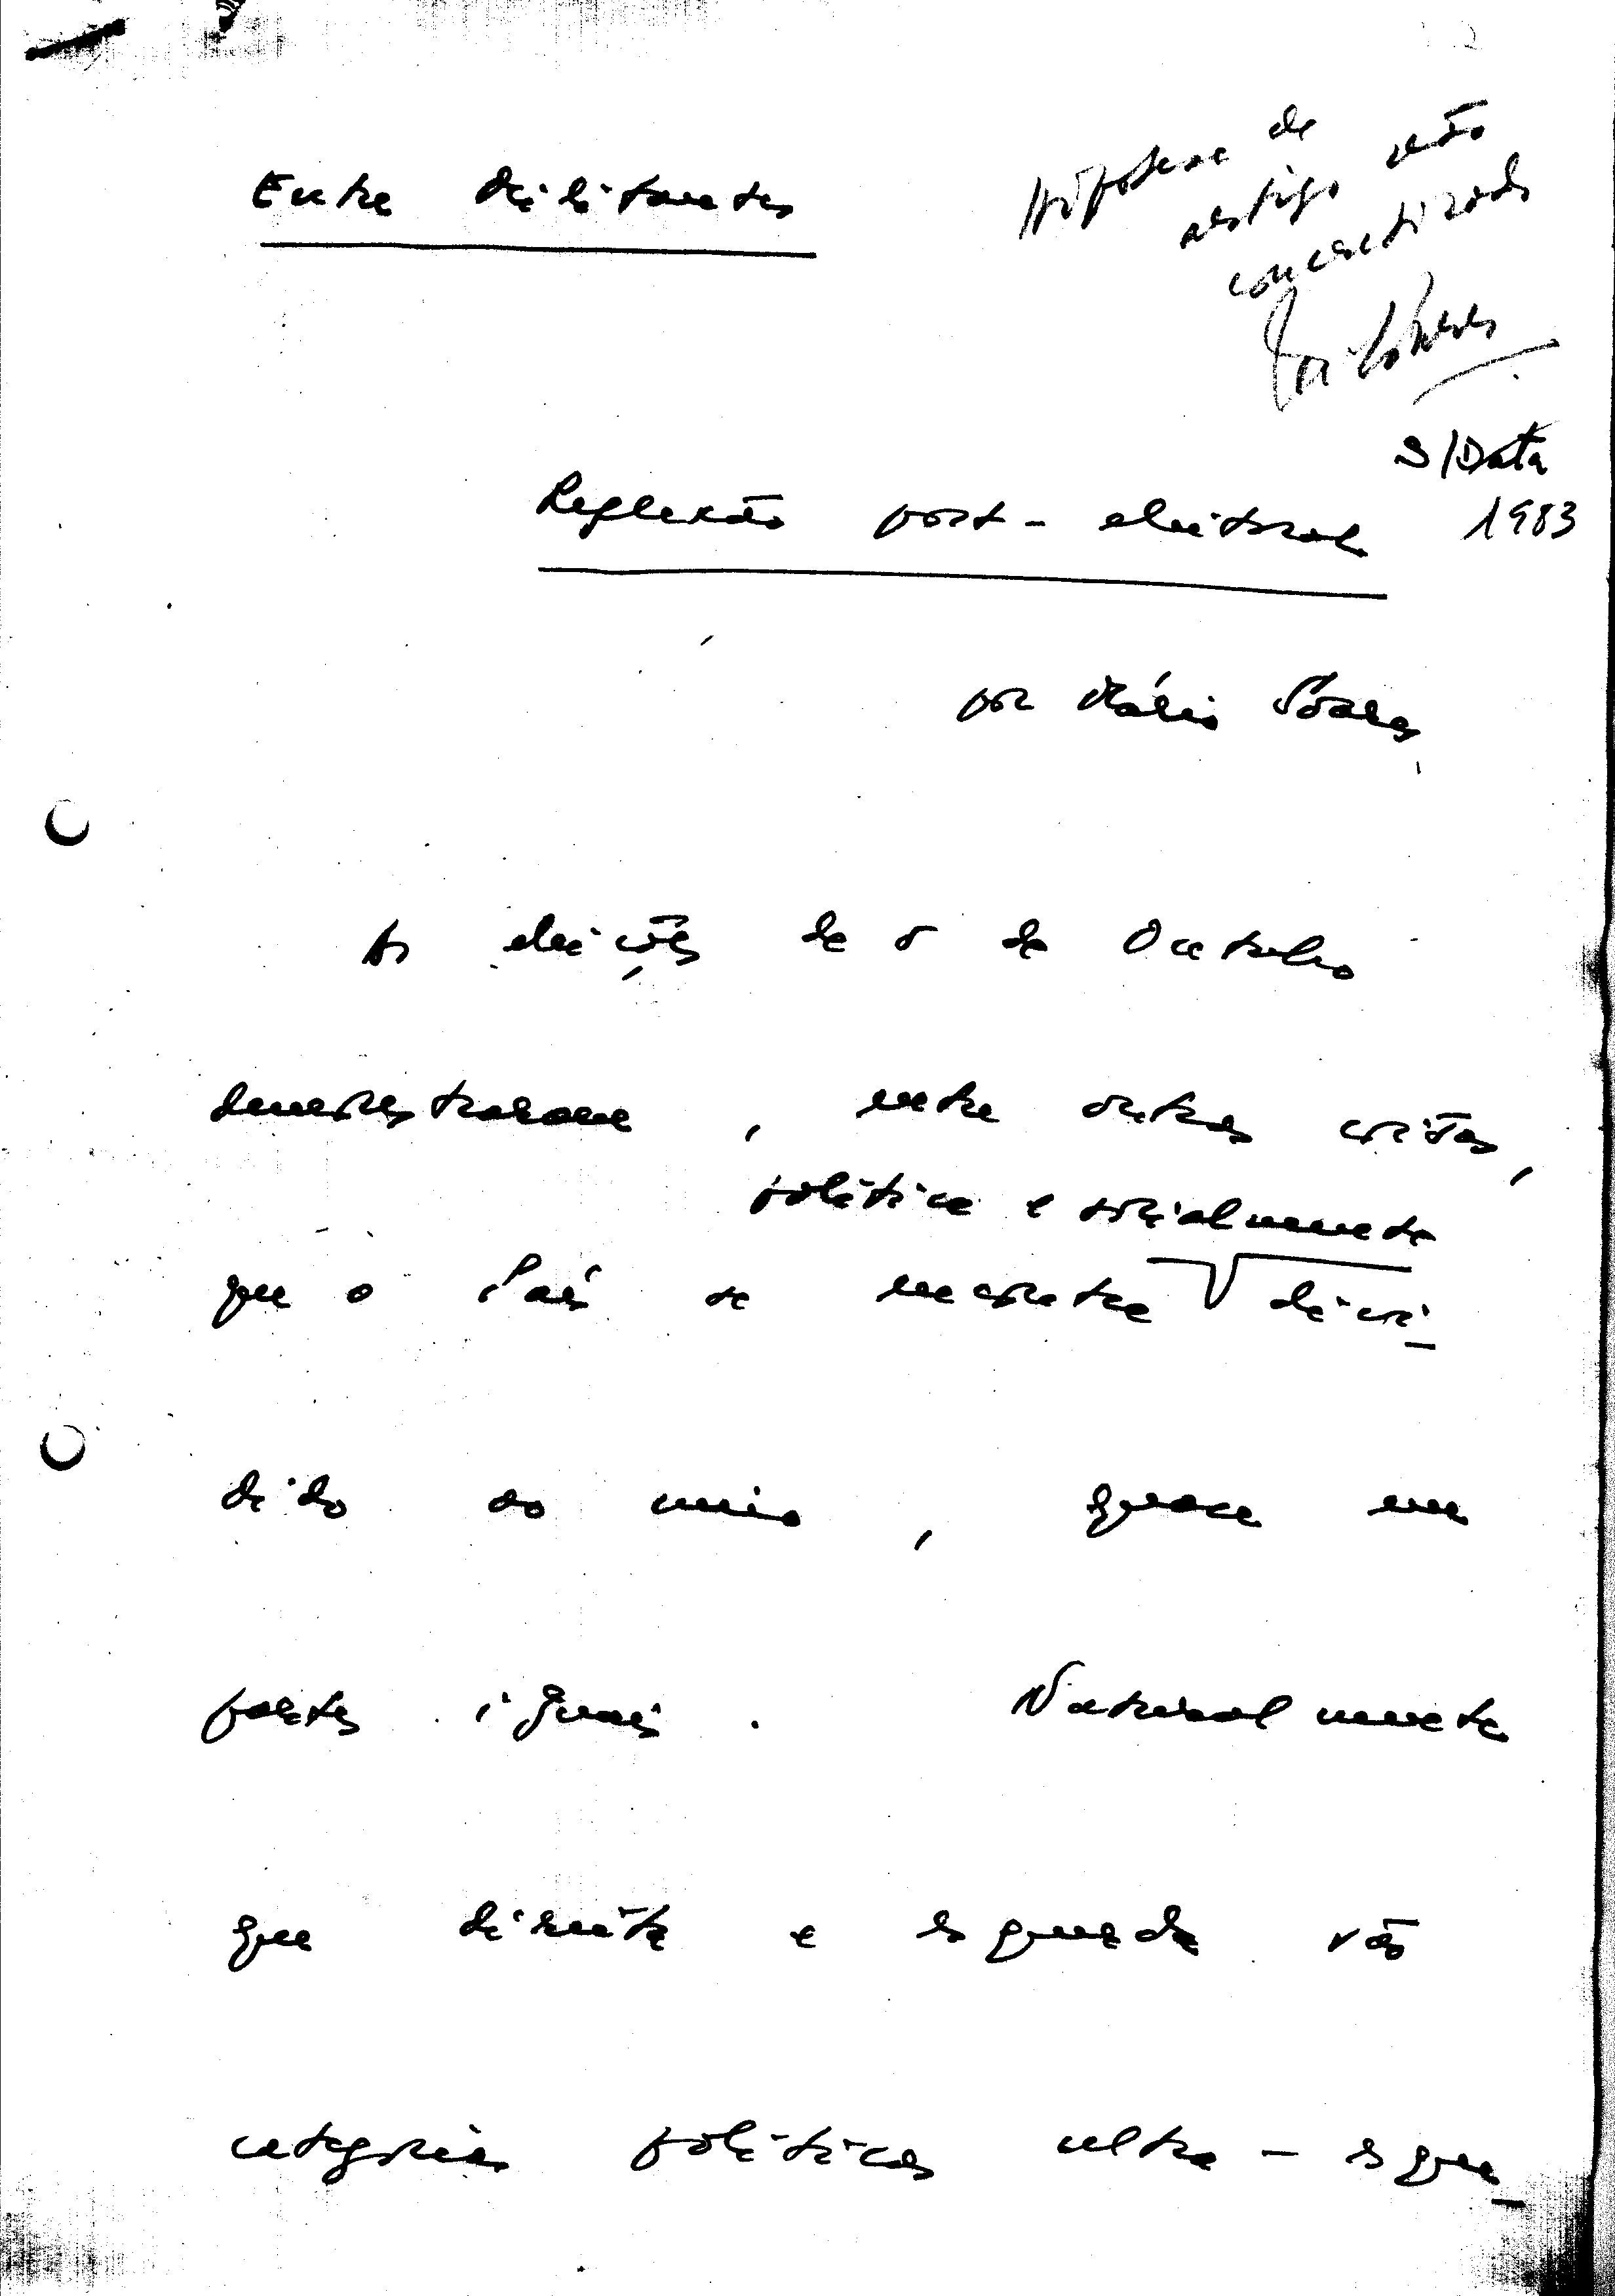 Entre Militantes
Hipótese de
artigo não
concretizado
S/Data
1983
Reflexão post-eleitoral
por Mário Soares
As eleições de 5 de Outubro
demonstraram, entre outras coisas,
política e socialmente
que o País se encontra divi-
dido ao meio, quase em
partes iguais. Naturalmente
que direita e esquerda são
categorias políticas ultra-esque-